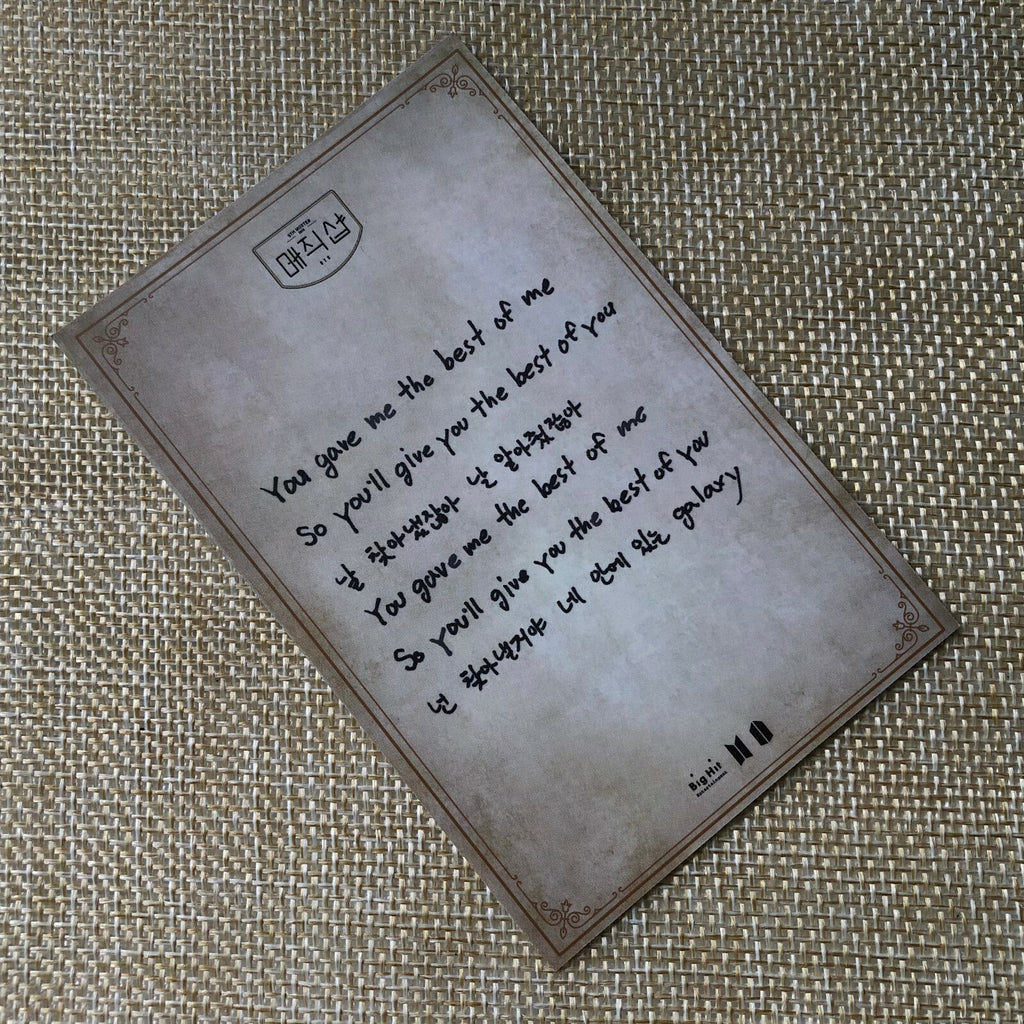 5TH MUSTER
BTS
매직샵
You gave me the best of me
So you'll give you the best of you
날 찾아냈잖아 날 알아줬잖아
You gave me the best of me
So you'll give you the best of you
넌 찾아낼거야 네 안에 있는 galaxy
Big Hit
ENTERTAINMENT